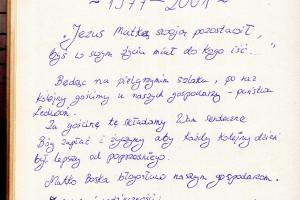 ~ 1977 – 2001 ~
„Jezus Matkę swoją pozostawił,
byś w swym życiu miał do kogo iść..."
Będąc na pielgrzymim szlaku, po raz
kolejny gościmy u naszych gospodarzy - państwa
Za gościnę tę składamy Wam serdeczne
Bóg zapłać i życzymy aby każdy kolejny dzień
był lepszy od poprzedniego.
Matko Boska błogosław naszym gospodarzom.